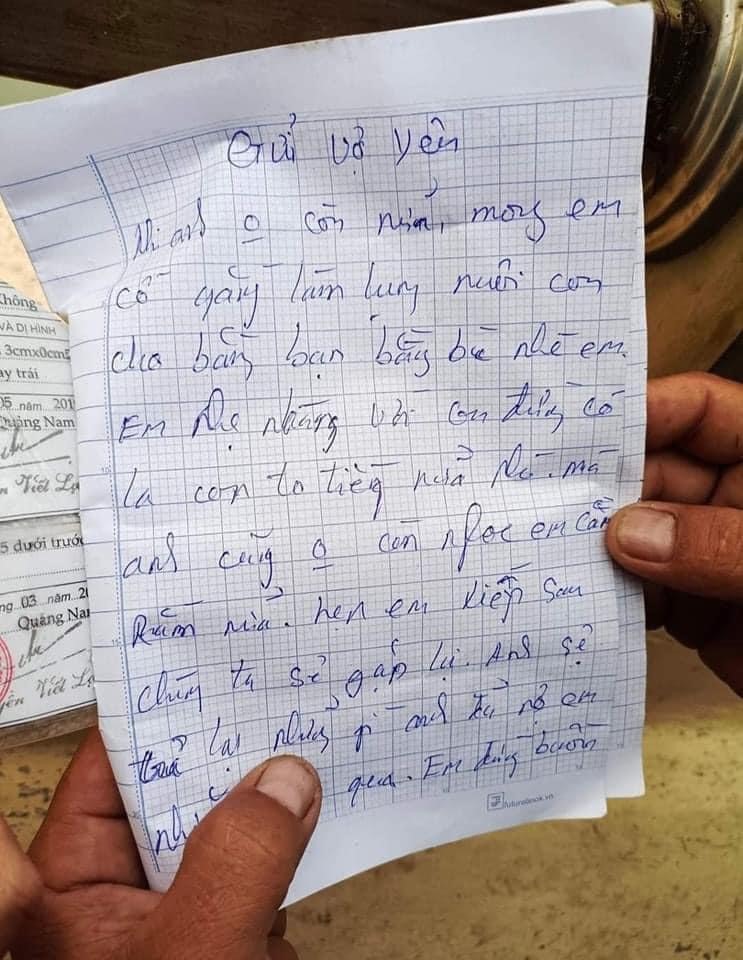 Gửi vợ yên
khi anh o còn nữa, mong em
cố gắng làm lụng nuôi con
cho bằng bạn bằng bè nhé em.
Em nhẹ nhàng với con đừng có
la con to tiếng nữa nhé. mà
anh cũng o còn nghe em cằn
Rằn nữa. hẹn em kiếp sau
chúng ta sẽ gặp lại. Anh sẽ
trả lại những gì anh đã nợ em
qua. Em đừng buồn
futurebook.vn
Không
VÀ DỊ HÌNH
3cmx0cm5
ay trái
05 năm 201
Quảng Nam
Viết
5 dưới trước
ng 03 năm 20
Quảng Na
Viết